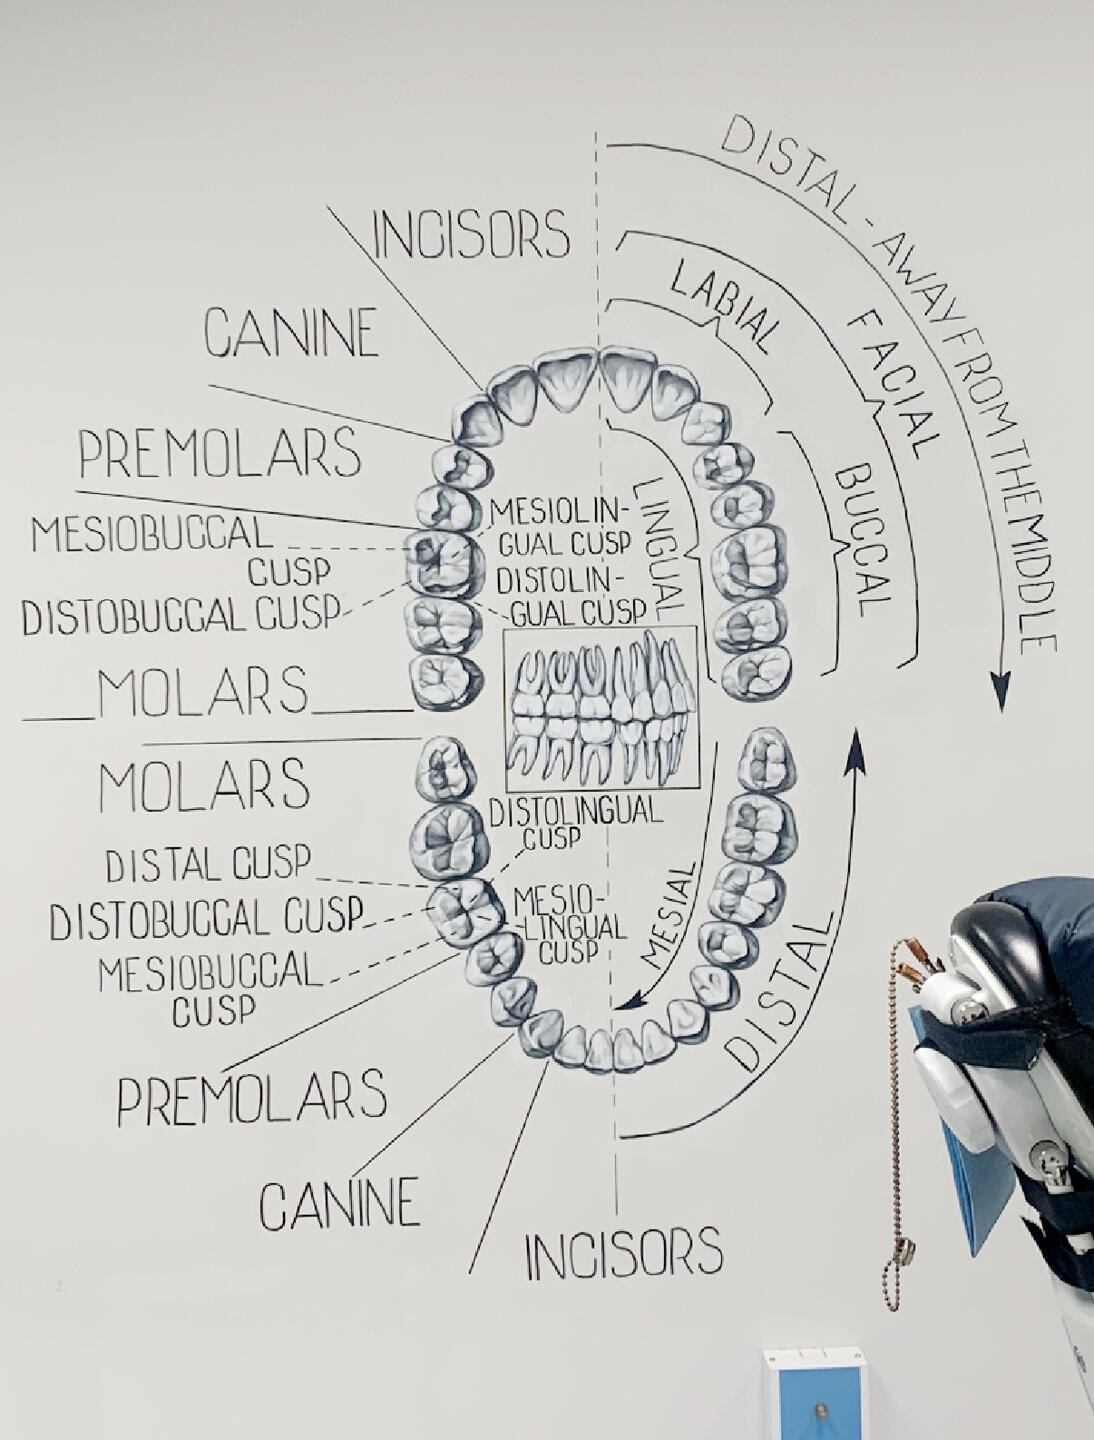 DISTAL - AWAY FROM THE MIDDLE
INCISORS
LABIAL
FACIAL
CANINE
PREMOLARS
BUCCAL
LINGUAL
MESIOBUCCAL
CUSP
DISTOBUCCAL CUSP
MESIOLIN-
GUAL CUSP
DISTOLIN-
GUAL CUSP
MOLARS
MOLARS
DISTOLINGUAL
CUSP
DISTAL CUSP
DISTOBUCCAL CUSP
MESIOBUCCAL
CUSP
MESIO-
-LINGUAL
CUSP
MESIAL
DISTAL
PREMOLARS
CANINE
INCISORS